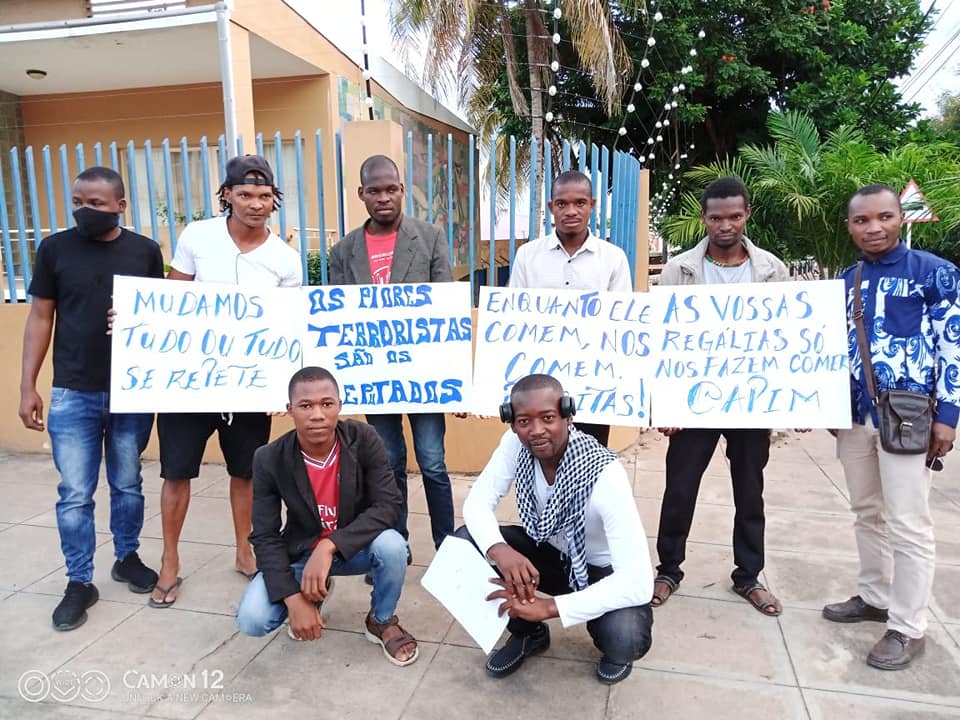 MUDAMOS
TUDO OU TUDO
SE REPETE
OS PIORES
TERRORISTAS
SÃO OS
ENQUANTO ELE
COMEM, NOS
COMEM.
AS VOSSAS
REGÁLIAS SÓ
NOS FAZEM COMER
@APIM
CAMON 12
UNLOCK A NEW CAMERA